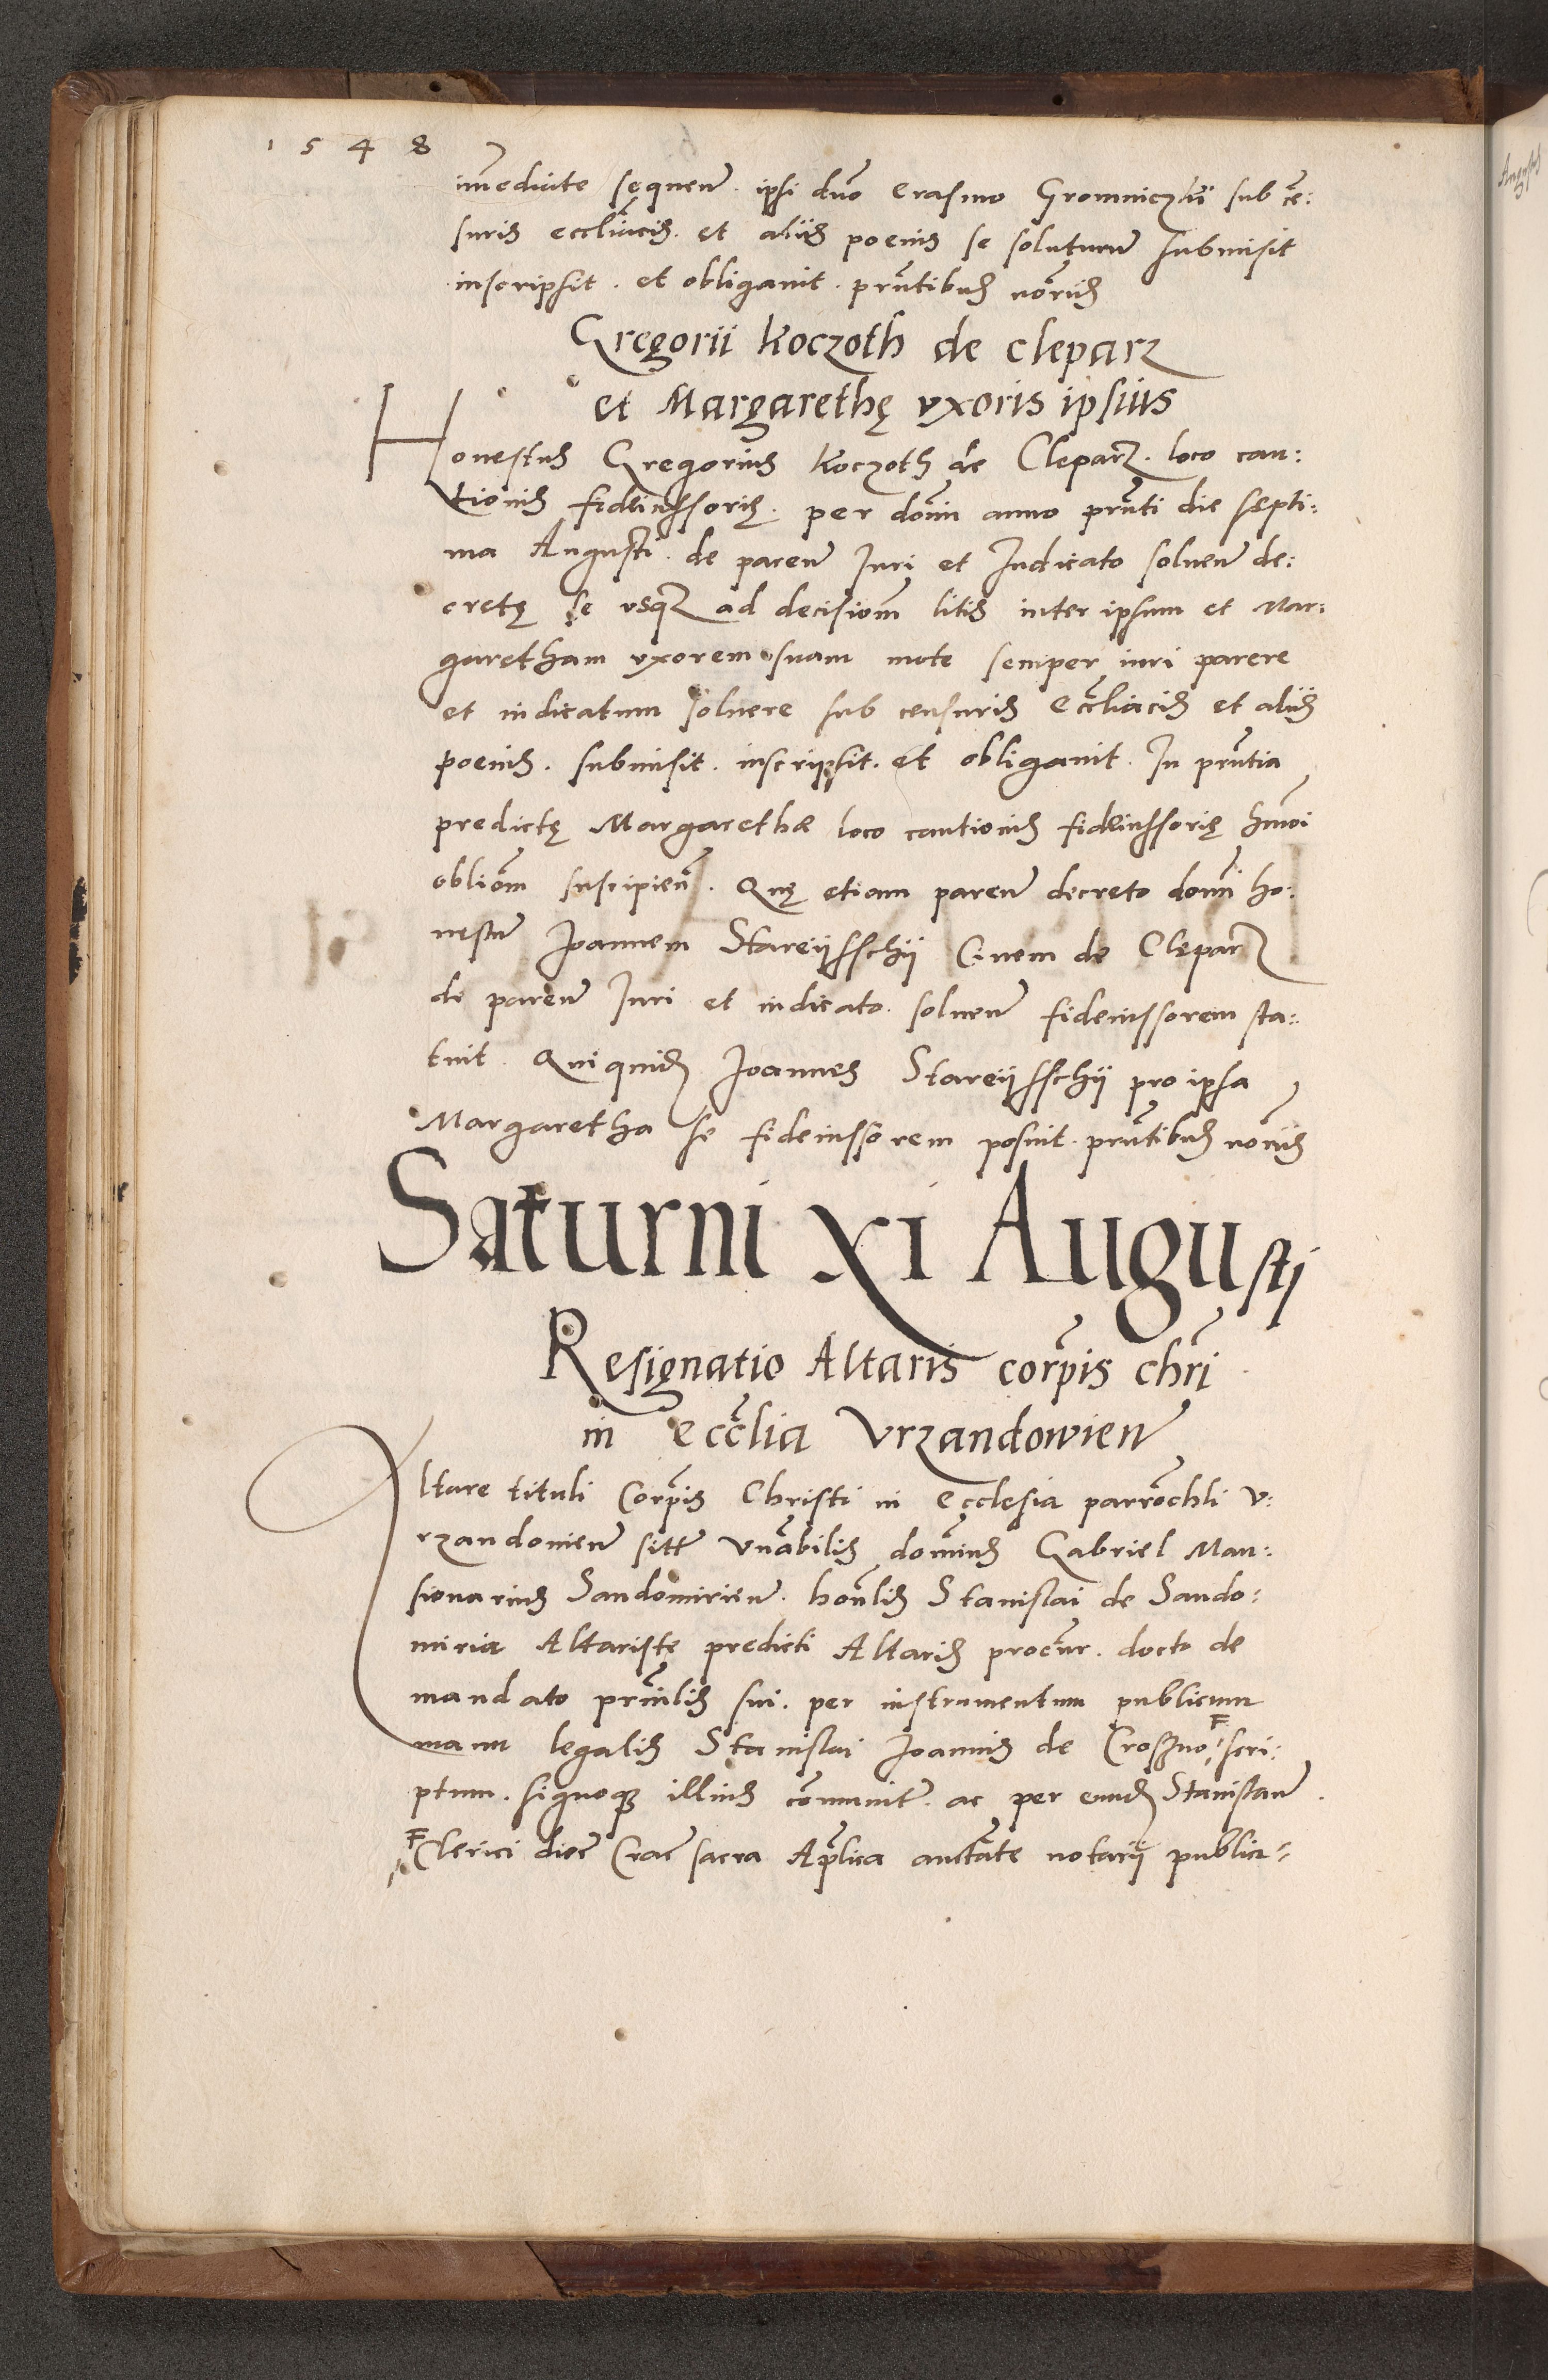 1548
im̃ediate sequeñ. ipsi dño Erasmo Gromniczkii sub cẽ:
suris eccl̃iacis. et aliis poenis se soluturum submisit
inscripsit. et obligauit. prñtibus noriis
Gregorii Koczoth de Cleparz
et Margarethę vxoris ipsius
Honestus Gregorius Koczoth de Cleparz. loco cau:
tionis fideiussorię. per dom̃ anno prñti die septi:
ma Augusti. de pareñ Iuri et Iudicato solueñ de:
cretę se vsqz ad decisiom̃ litis inter ipsum et Mar:
garetham vxorem suam mote semper iuri parere
et iudicatum soluere sub censuris eccl̃iacis et aliis
poenis. submisit. inscripsit. et obligauit. In prñtia
predictę Margarethæ loco cautionis fideiussorię hm̃oi
obliõm suscipieñ. Quę etiam pareñ decreto domi ho:
nestum Ioannem Stareijsschij Ciuem de Cleparz
de pareñ Iuri et iudicato solueñ fideiussorem sta:
tuit. Qui quidem Ioannes Stareijsschij pro ipsa
Margaretha se fideiussorem posuit. prñtibus noriis
Saturni XI Augusti
Resignatio Altaris corp̃is chr̃i
in eccl̃ia Vrzandowieñ
Altare tituli Corp̃is Christi in ecclesia parrochli V:
rzandouieñ sitt̃ Vñabilis dom̃inus Gabriel Man:
sionarius Sandomirieñ. hoñlis Stanislai de Sando:
miria Altariste predicti Altaris procur̃. docto de
mandato prin̄ilis sui. per instrumentum publicum
manu legalis Stanislai Ioannis de Croszno F scri:
ptum. signoqz illius com̃unit̃. ac per eundem Stanislaum
F Clerici dioc̃ Crac̃ sacra Ap̃lica auct̃ate notarij publici
August